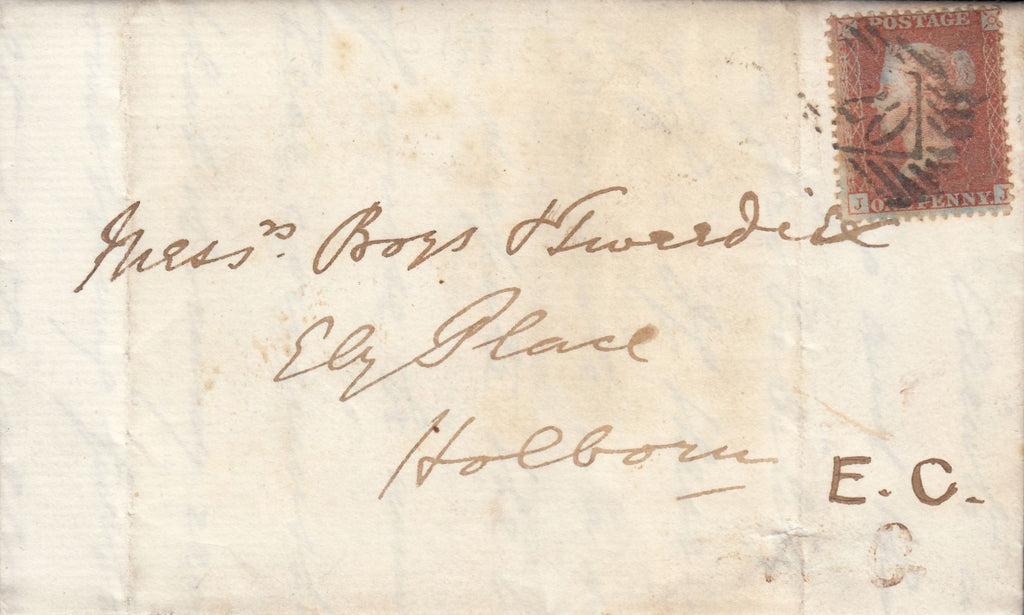 POSTAGE
J ONE PENNY J
Messrs. Boys & Tweedie
Ely Place
Holborn
E. C.
C